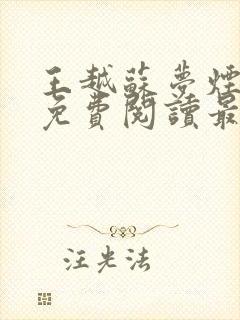 王越蘇夢煙
免費閱讀最
汪光法